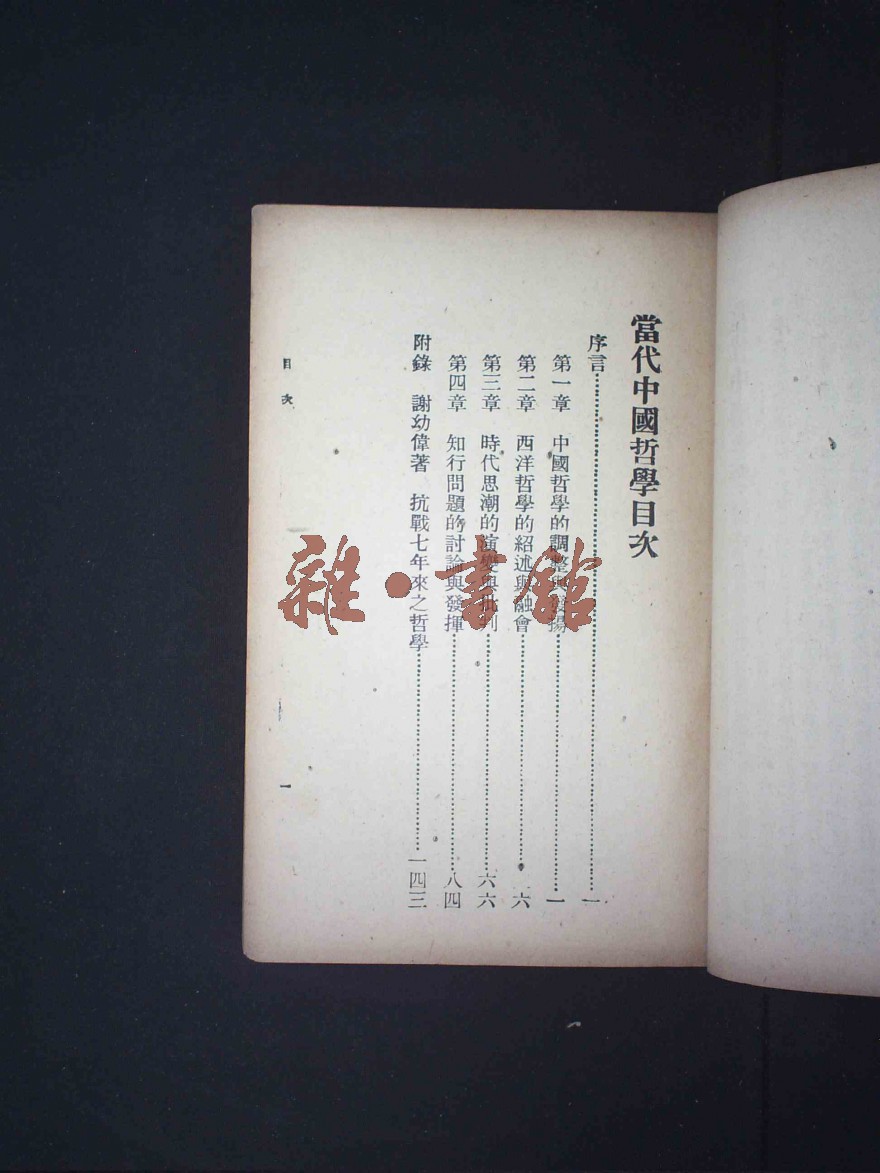 當代中國哲學目次
序言……一
第一章 中國哲學的調整與發揚……一
第二章 西洋哲學的紹述與融會……六
第三章 時代思潮的演變與批判……六六
第四章 知行問題的討論與發揮……八四
附錄 謝幼偉著 抗戰七年來之哲學……一四三
目次
一
雜·書館